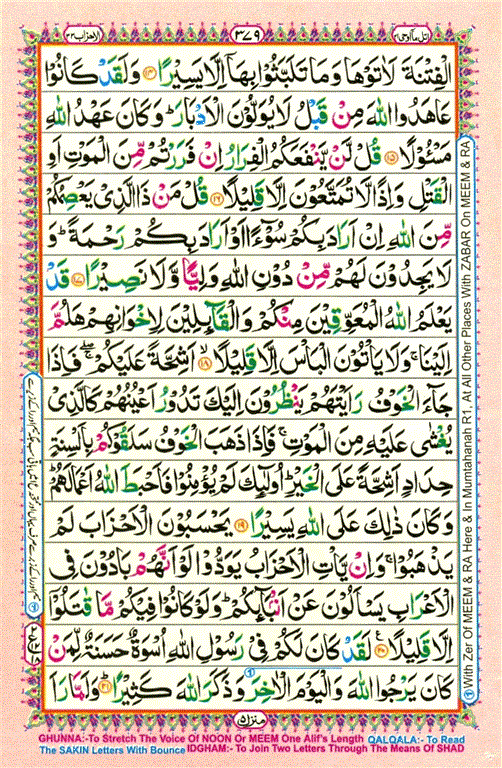 الاحزاب ٣٣
٣٧٩
اتل ما اوحی ٢١
الْفِتْنَةَ لَاٰتَوْهَا وَمَا تَلَبَّثُوْا بِهَاۤ اِلَّا يَسِيْرًا ﴿١٤﴾ وَلَقَدْ كَانُوْا
عَاهَدُوا اللّٰهَ مِنْ قَبْلُ لَا يُوَلُّوْنَ الْاَدْبَارَ ؕ وَكَانَ عَهْدُ اللّٰهِ
مَسْـُٔوْلًا ﴿١٥﴾ قُلْ لَّنْ يَّنْفَعَكُمُ الْفِرَارُ اِنْ فَرَرْتُمْ مِّنَ الْمَوْتِ اَوِ
الْقَتْلِ وَاِذًا لَّا تُمَتَّعُوْنَ اِلَّا قَلِيْلًا ﴿١٦﴾ قُلْ مَنْ ذَا الَّذِيْ يَعْصِمُكُمْ
مِّنَ اللّٰهِ اِنْ اَرَادَ بِكُمْ سُوْٓءًا اَوْ اَرَادَ بِكُمْ رَحْمَةً ؕ وَ
لَا يَجِدُوْنَ لَهُمْ مِّنْ دُوْنِ اللّٰهِ وَلِيًّا وَّلَا نَصِيْرًا ﴿١٧﴾ قَدْ
يَعْلَمُ اللّٰهُ الْمُعَوِّقِيْنَ مِنْكُمْ وَالْقَآئِلِيْنَ لِاِخْوَانِهِمْ هَلُمَّ
اِلَيْنَا ۚ وَلَا يَاْتُوْنَ الْبَاْسَ اِلَّا قَلِيْلًا ﴿١٨﴾ اَشِحَّةً عَلَيْكُمْ ۖ فَاِذَا
جَآءَ الْخَوْفُ رَاَيْتَهُمْ يَنْظُرُوْنَ اِلَيْكَ تَدُوْرُ اَعْيُنُهُمْ كَالَّذِيْ
يُغْشٰى عَلَيْهِ مِنَ الْمَوْتِ ۚ فَاِذَا ذَهَبَ الْخَوْفُ سَلَقُوْكُمْ بِاَلْسِنَةٍ
حِدَادٍ اَشِحَّةً عَلَى الْخَيْرِ ؕ اُولٰٓئِكَ لَمْ يُؤْمِنُوْا فَاَحْبَطَ اللّٰهُ اَعْمَالَهُمْ ؕ
وَكَانَ ذٰلِكَ عَلَى اللّٰهِ يَسِيْرًا ﴿١٩﴾ يَحْسَبُوْنَ الْاَحْزَابَ لَمْ
يَذْهَبُوْا ۚ وَاِنْ يَّاْتِ الْاَحْزَابُ يَوَدُّوْا لَوْ اَنَّهُمْ بَادُوْنَ فِي
الْاَعْرَابِ يَسْاَلُوْنَ عَنْ اَنْۢبَآئِكُمْ ؕ وَلَوْ كَانُوْا فِيْكُمْ مَّا قٰتَلُوْٓا
اِلَّا قَلِيْلًا ﴿٢٠﴾ لَقَدْ كَانَ لَكُمْ فِيْ رَسُوْلِ اللّٰهِ اُسْوَةٌ حَسَنَةٌ لِّمَنْ
كَانَ يَرْجُوا اللّٰهَ وَالْيَوْمَ الْاٰخِرَ وَذَكَرَ اللّٰهَ كَثِيْرًا ﴿٢١﴾ وَلَمَّا رَاَ
منزل ٥
With Zer Of MEEM & RA Here & In Mumtahanah R1, At All Other Places With ZABAR On MEEM & RA
GHUNNA:-To Stretch The Voice Of NOON Or MEEM One Alif's Length QALQALA:- To Read
The SAKIN Letters With Bounce IDGHAM:- To Join Two Letters Through The Means Of SHAD